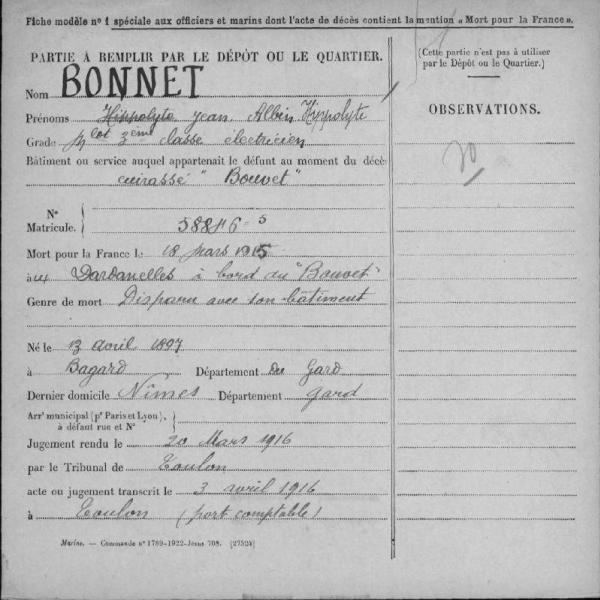 Fiche modèle n° 1 spéciale aux officiers et marins dont l'acte de décès contient la mention « Mort pour la France ».
PARTIE À REMPLIR PAR LE DÉPÔT OU LE QUARTIER.
Nom BONNET
Prénoms Hippolyte Jean Albin Hippolyte
Grade Mlot 3ème classe électricien
Bâtiment ou service auquel appartenait le défunt au moment du décè
cuirassé "Bouvet"
N° Matricule. 5
Mort pour la France le 18 Mars 1915
aux Dardanelles à bord du "Bouvet"
Genre de mort Disparu avec son bâtiment
Né le 13 avril 1897
à Bagard Département du Gard
Dernier domicile Nîmes Département Gard
Arrt municipal (pr Paris et Lyon), à défaut rue et N°
Jugement rendu le 20 Mars 1916
par le Tribunal de Toulon
acte ou jugement transcrit le 3 avril 1916
à Toulon (port comptable)
Marine. — Commande n° 1789-1922-Jésus 708. [27524]
(Cette partie n'est pas à utiliser
par le Dépôt ou le Quartier.)
OBSERVATIONS.